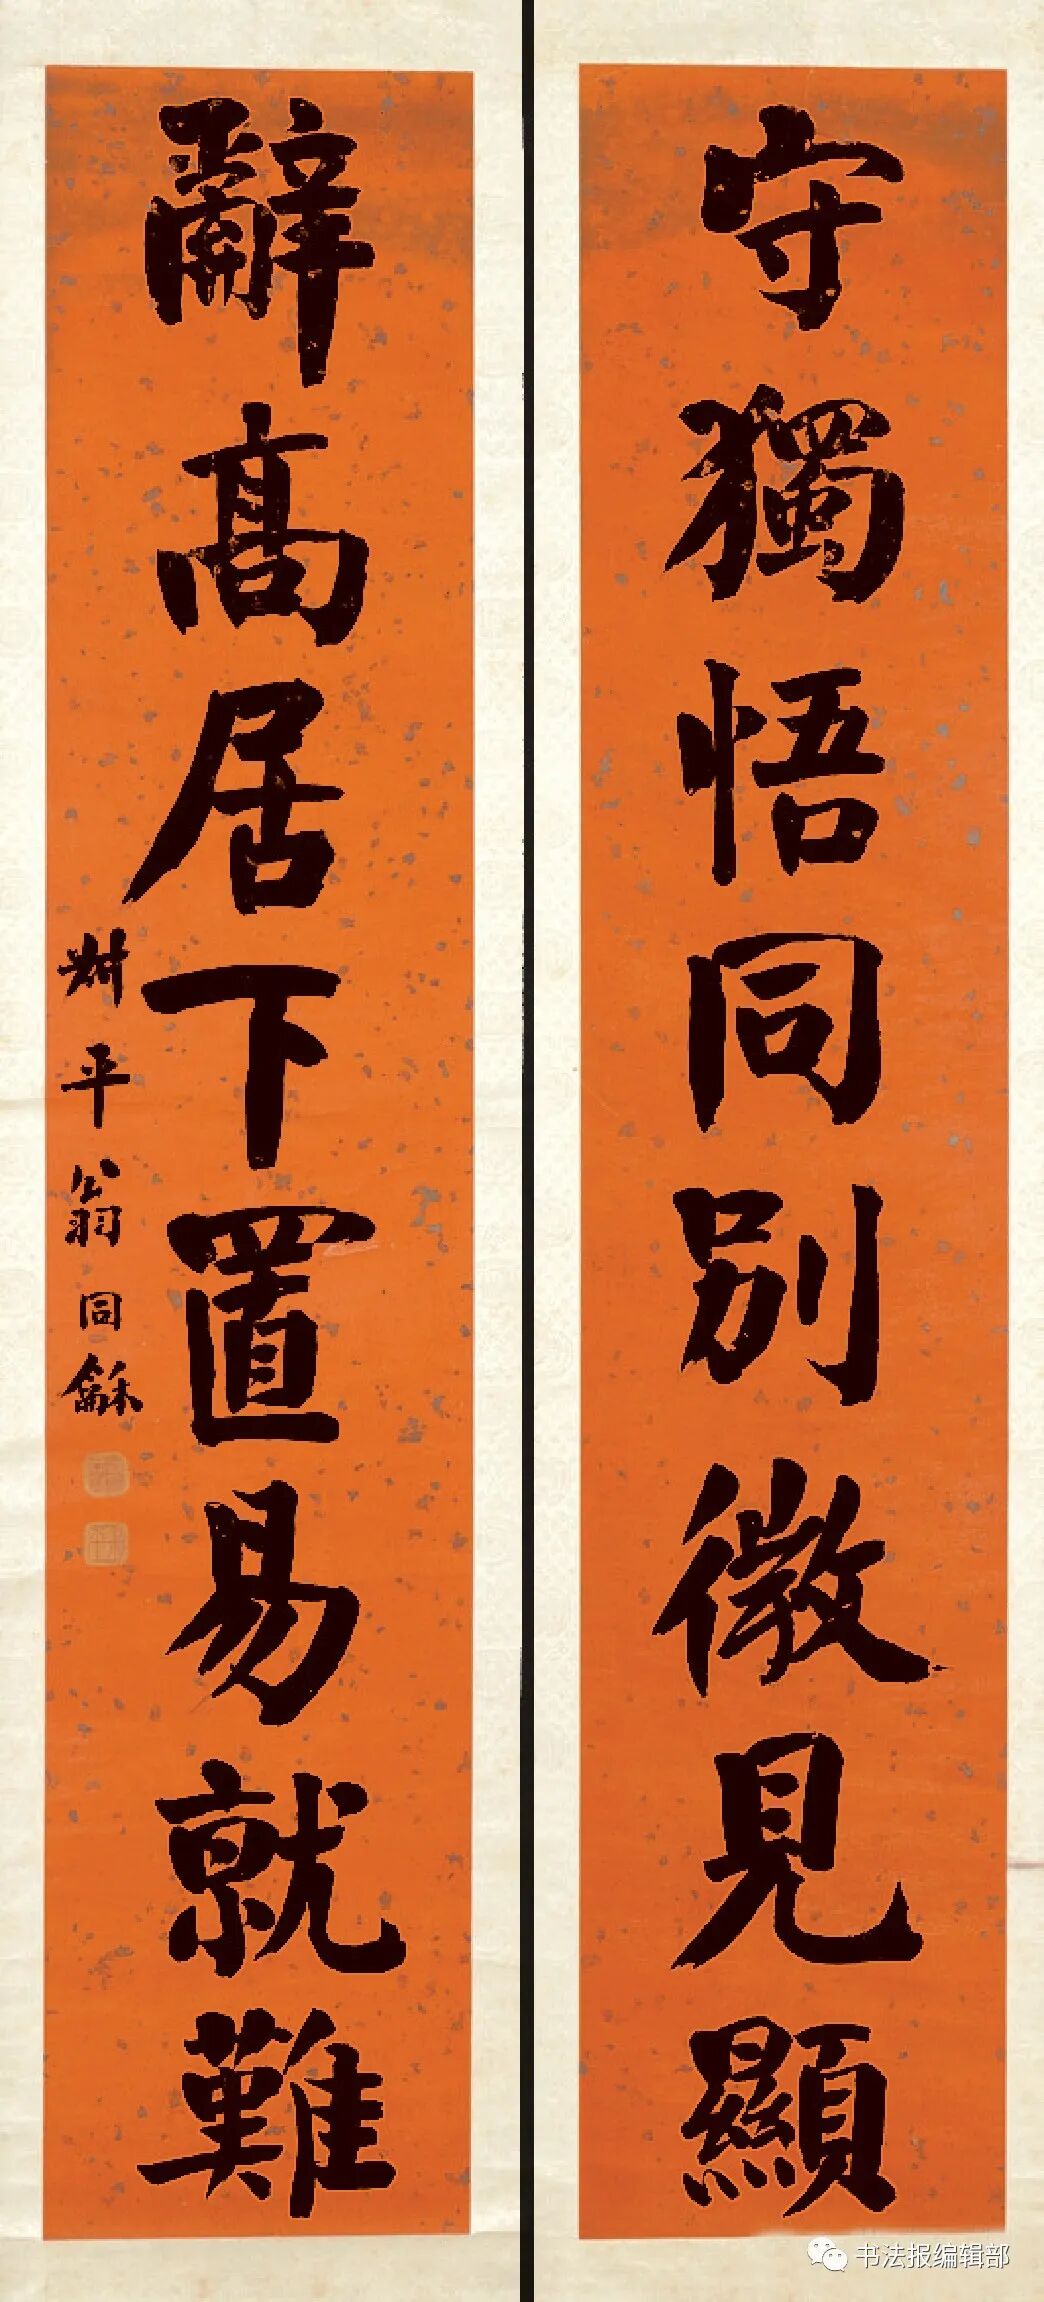 守獨悟同別微見顯
辭高居下置易就難
叔平翁同龢
书法报编辑部